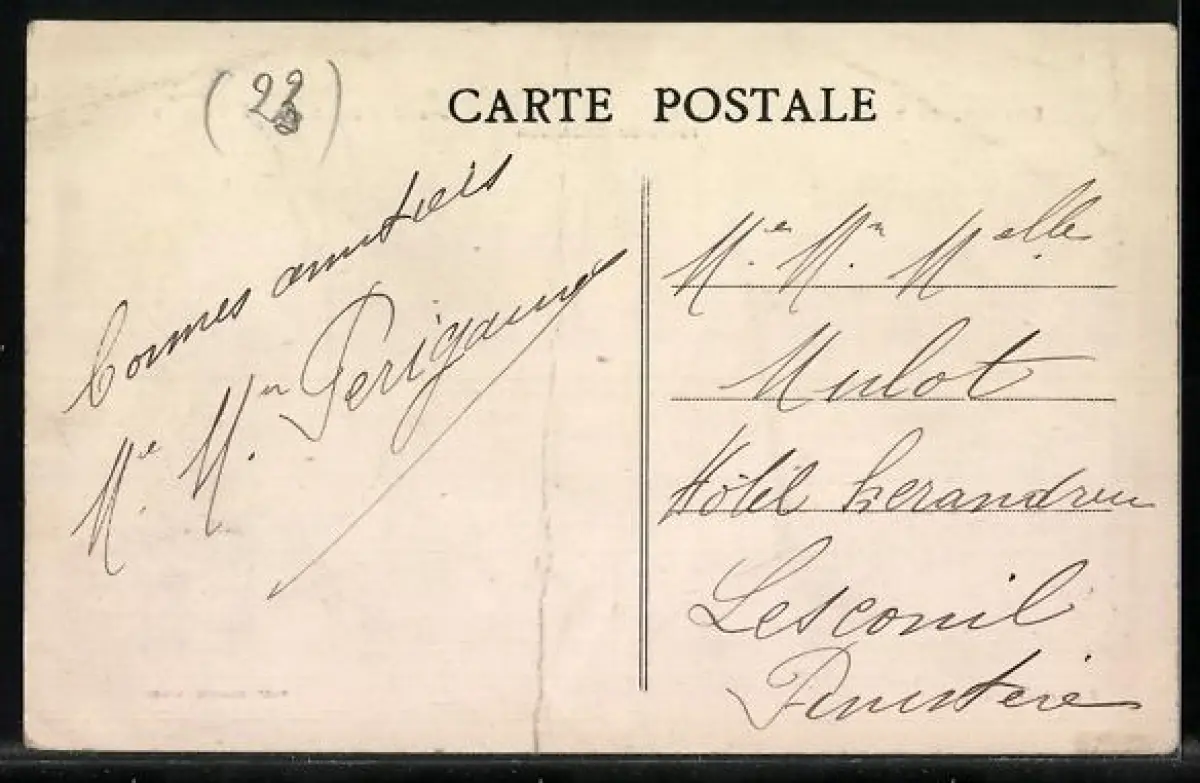 (22)
CARTE POSTALE
bonnes amitiés
Mr. Mm Perigaux
Mr. Mm Melle
Mulot
Hôtel
Lesconil
Finistère